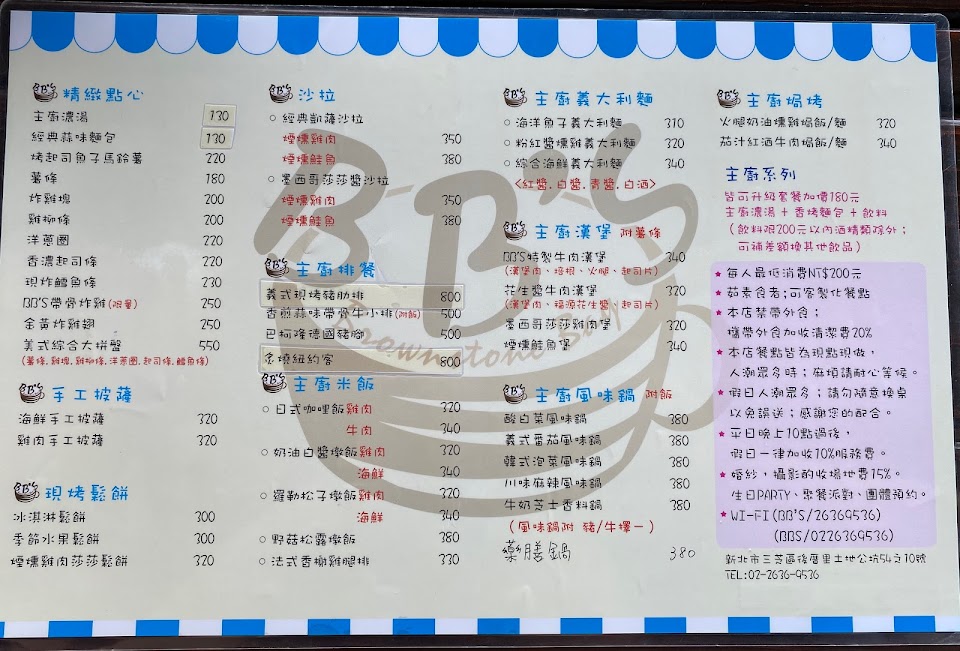 精緻點心
主廚濃湯 130
經典蒜味麵包 130
烤起司魚子馬鈴薯 220
薯條 180
炸雞塊 200
雞柳條 200
洋蔥圈 220
香濃起司條 220
現炸鱈魚條 230
BB'S帶骨炸雞(限量) 250
金黃炸雞翅 250
美式綜合大拼盤 550
(薯條.雞塊.雞柳條.洋蔥圈.起司條.鱈魚條)
手工披薩
海鮮手工披薩 320
雞肉手工披薩 320
現烤鬆餅
冰淇淋鬆餅 300
季節水果鬆餅 300
煙燻雞肉莎莎鬆餅 320
沙拉
○ 經典凱薩沙拉
煙燻雞肉 350
煙燻鮭魚 380
○ 墨西哥莎莎醬沙拉
煙燻雞肉 350
煙燻鮭魚 380
主廚排餐
義式現烤豬肋排 800
香煎蒜味帶骨牛小排(附飯) 500
巴柯隆德國豬腳 500
炙燒紐約客 800
主廚米飯
○ 日式咖哩飯雞肉 320
牛肉 340
○ 奶油白醬燉飯雞肉 320
海鮮 340
○ 羅勒松子燉飯雞肉 320
海鮮 340
○ 野菇松露燉飯 380
○ 法式香榭雞腿排 330
主廚義大利麵
○ 海洋魚子義大利麵 310
○ 粉紅醬燻雞義大利麵 320
○ 綜合海鮮義大利麵 340
<紅醬.白醬.青醬.白酒>
主廚漢堡 附薯條
BB'S特製牛肉漢堡 340
(漢堡肉、培根、火腿、起司片)
花生醬牛肉漢堡 320
(漢堡肉、福源花生醬、起司片)
墨西哥莎莎雞肉堡 320
煙燻鮭魚堡 340
主廚風味鍋 附飯
酸白菜風味鍋 380
義式番茄風味鍋 380
韓式泡菜風味鍋 380
川味麻辣風味鍋 380
牛奶芝士香料鍋 380
(風味鍋附 豬/牛擇一)
藥膳鍋 380
主廚焗烤
火腿奶油燻雞焗飯/麵 320
茄汁紅酒牛肉焗飯/麵 340
主廚系列
皆可升級套餐加價180元
主廚濃湯+香烤麵包+飲料
(飲料限200元以內酒精類除外;
可補差額換其他飲品)
★ 每人最低消費NT$200元
★ 茹素食者;可客製化餐點
★ 本店禁帶外食;
攜帶外食加收清潔費20%
★ 本店餐點皆為現點現做,
人潮眾多時;麻煩請耐心等候。
★ 假日人潮眾多;請勿隨意換桌
以免誤送;感謝您的配合。
★ 平日晚上10點過後,
假日一律加收10%服務費。
★ 婚紗,攝影酌收場地費15%。
生日PARTY、聚餐派對、團體預約。
★ WI-FI(BB'S/26369536)
(BBS/0226369536)
新北市三芝區後厝里土地公坑54之10號
TEL:02-2636-9536
BB's
Brownstone Bay